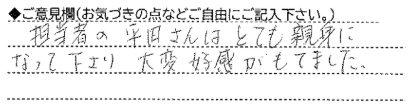 ◆ご意見欄(お気づきの点などご自由にご記入下さい。)
担当者の平田さんはとても親身に
なって下さり 大変 好感がもてました。